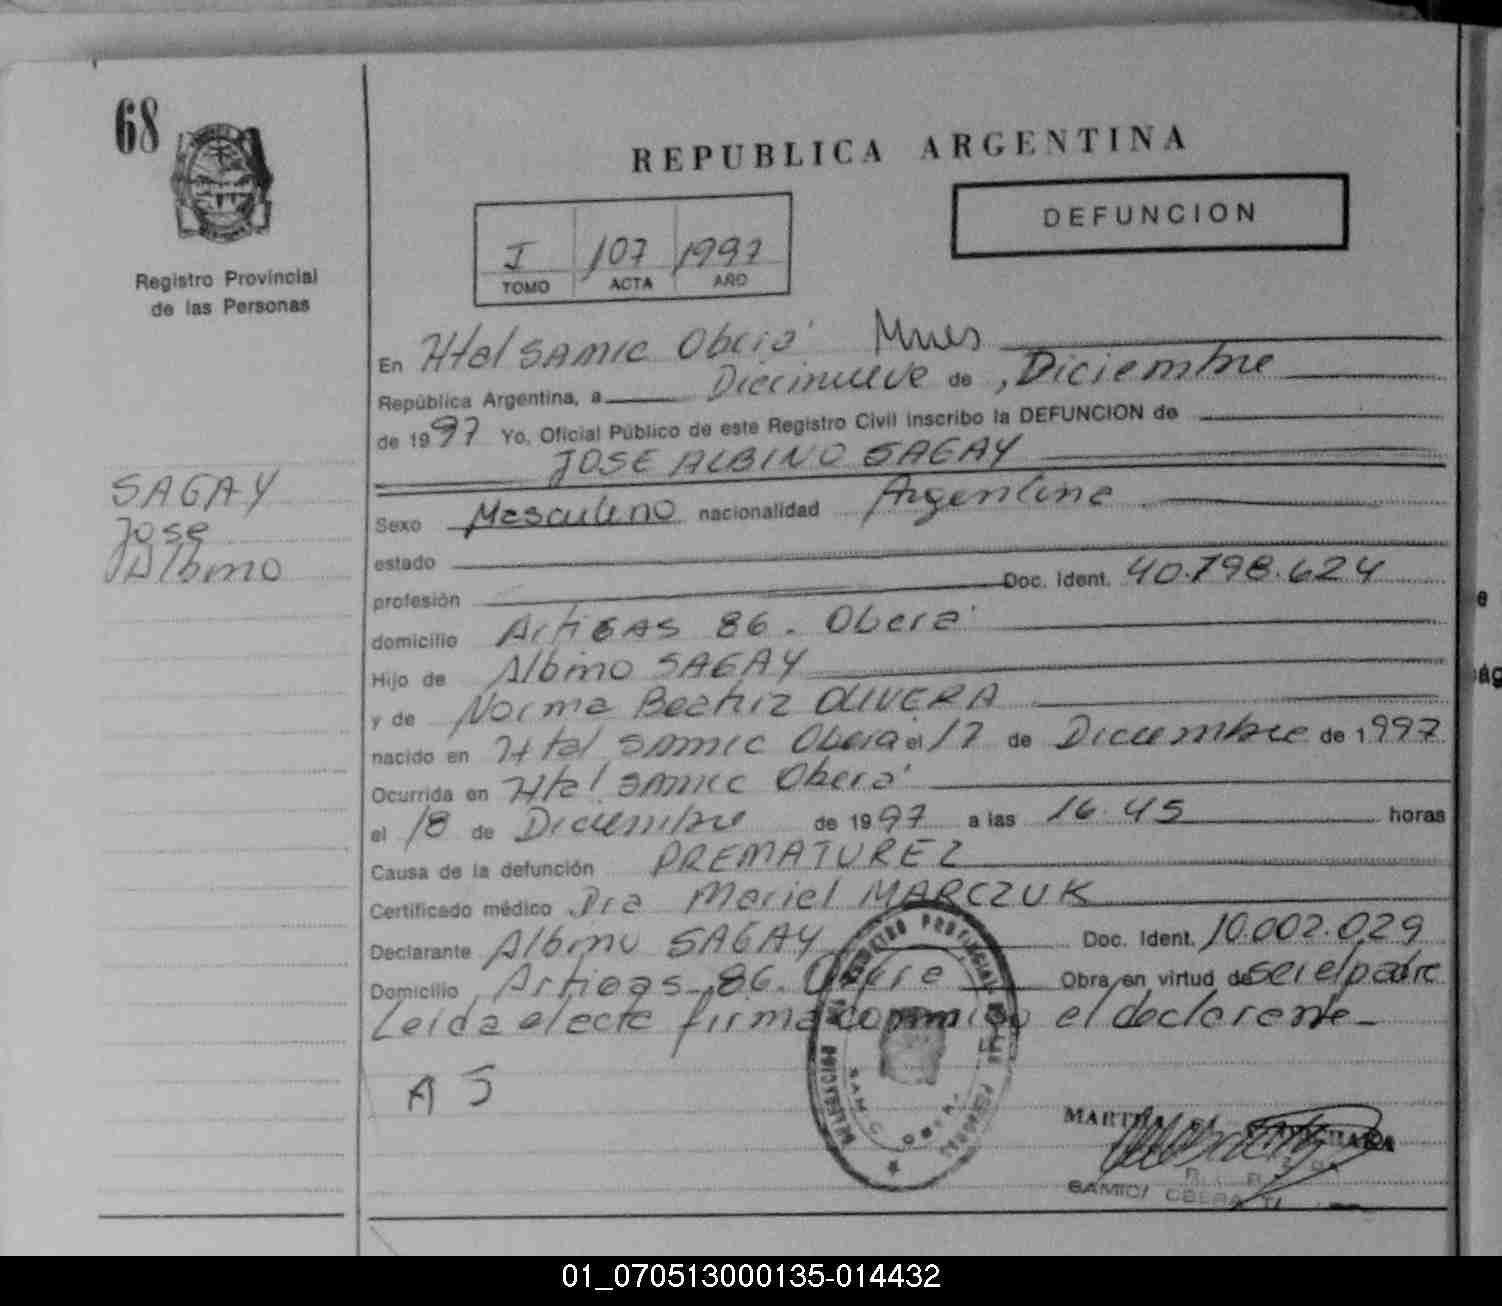 68
REPUBLICA ARGENTINA
DEFUNCION
I 107 1997
TOMO ACTA AÑO
Registro Provincial
de las Personas
SAGAY
Jose
Albino
En Htal SAMIC Oberá Mnes
República Argentina, a Diecinueve de Diciembre
de 1997 Yo, Oficial Público de este Registro Civil inscribo la DEFUNCION de
JOSE ALBINO SAGAY
Sexo Masculino nacionalidad Argentina
estado
profesión Doc. Ident. 40.798.624
domicilio Artigas 86. Oberá
Hijo de Albino SAGAY
y de Norma Beatriz OLIVERA
nacido en Htal SAMIC Oberá el 17 de Diciembre de 1997
Ocurrida en Htal SAMIC Oberá
el 18 de Diciembre de 1997 a las 16.45 horas
Causa de la defunción PREMATUREZ
Certificado médico Dra Mariel MARCZUK
Declarante Albino SAGAY Doc. Ident. 10.002.029
Domicilio Artigas 86. Obera Obra en virtud de ser el padre
Leida el acta firma conmigo el declarante
A S
REGISTRO PROVINCIAL DE LAS PERSONAS
DELEGACION
MARTHA
SAMIC OBERA
01_070513000135-014432